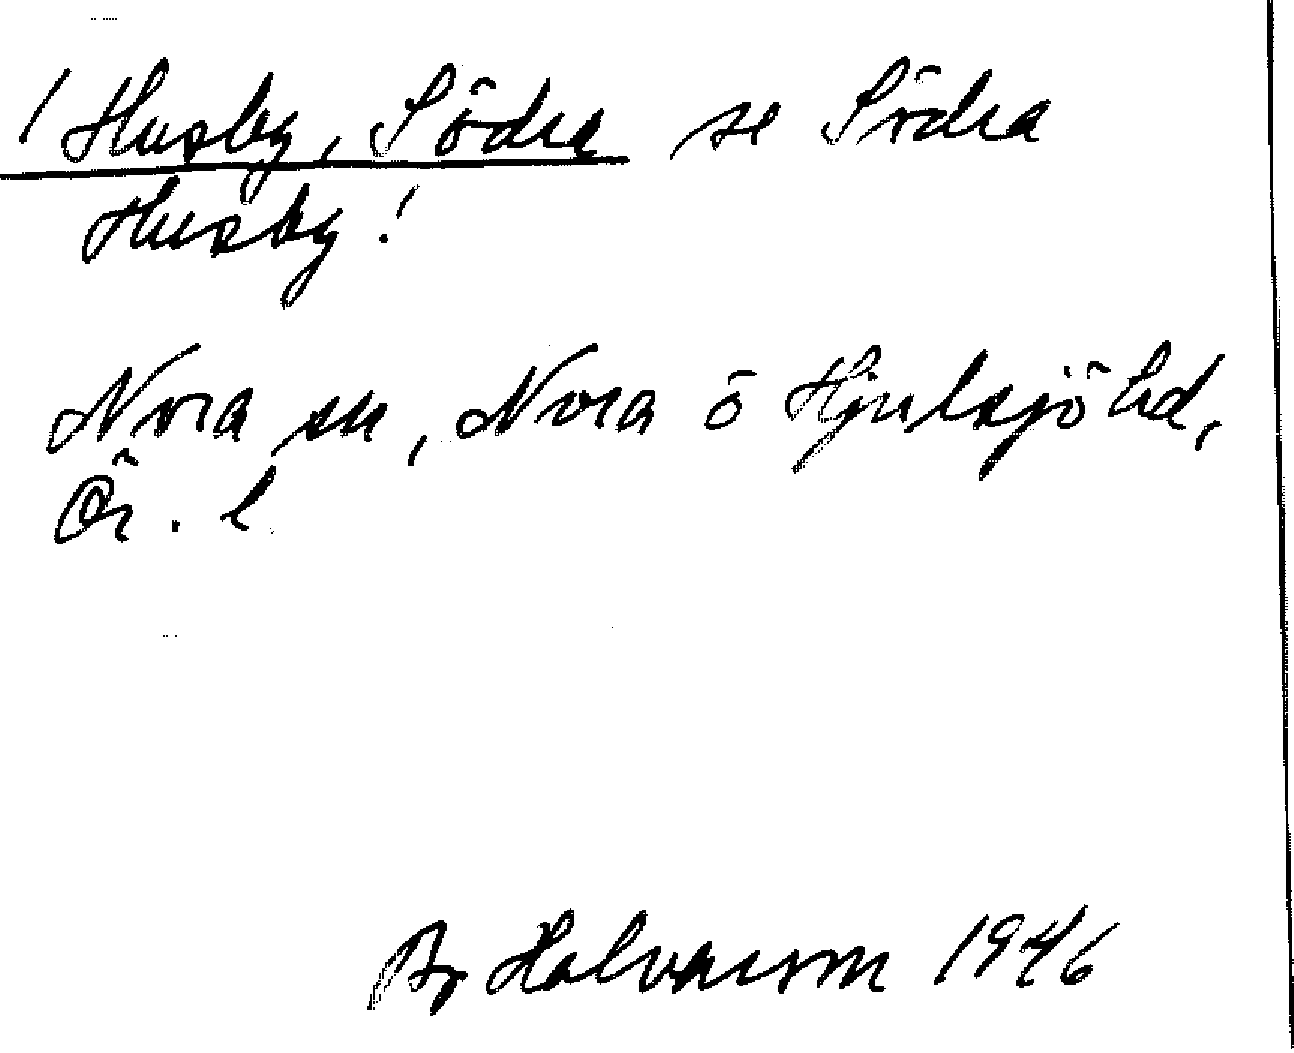 ! Husby, Södra se Södra
Husby!
Nora sn, Nora o Hjulsjö hd,
Ör. l.
Halvarsson 1946